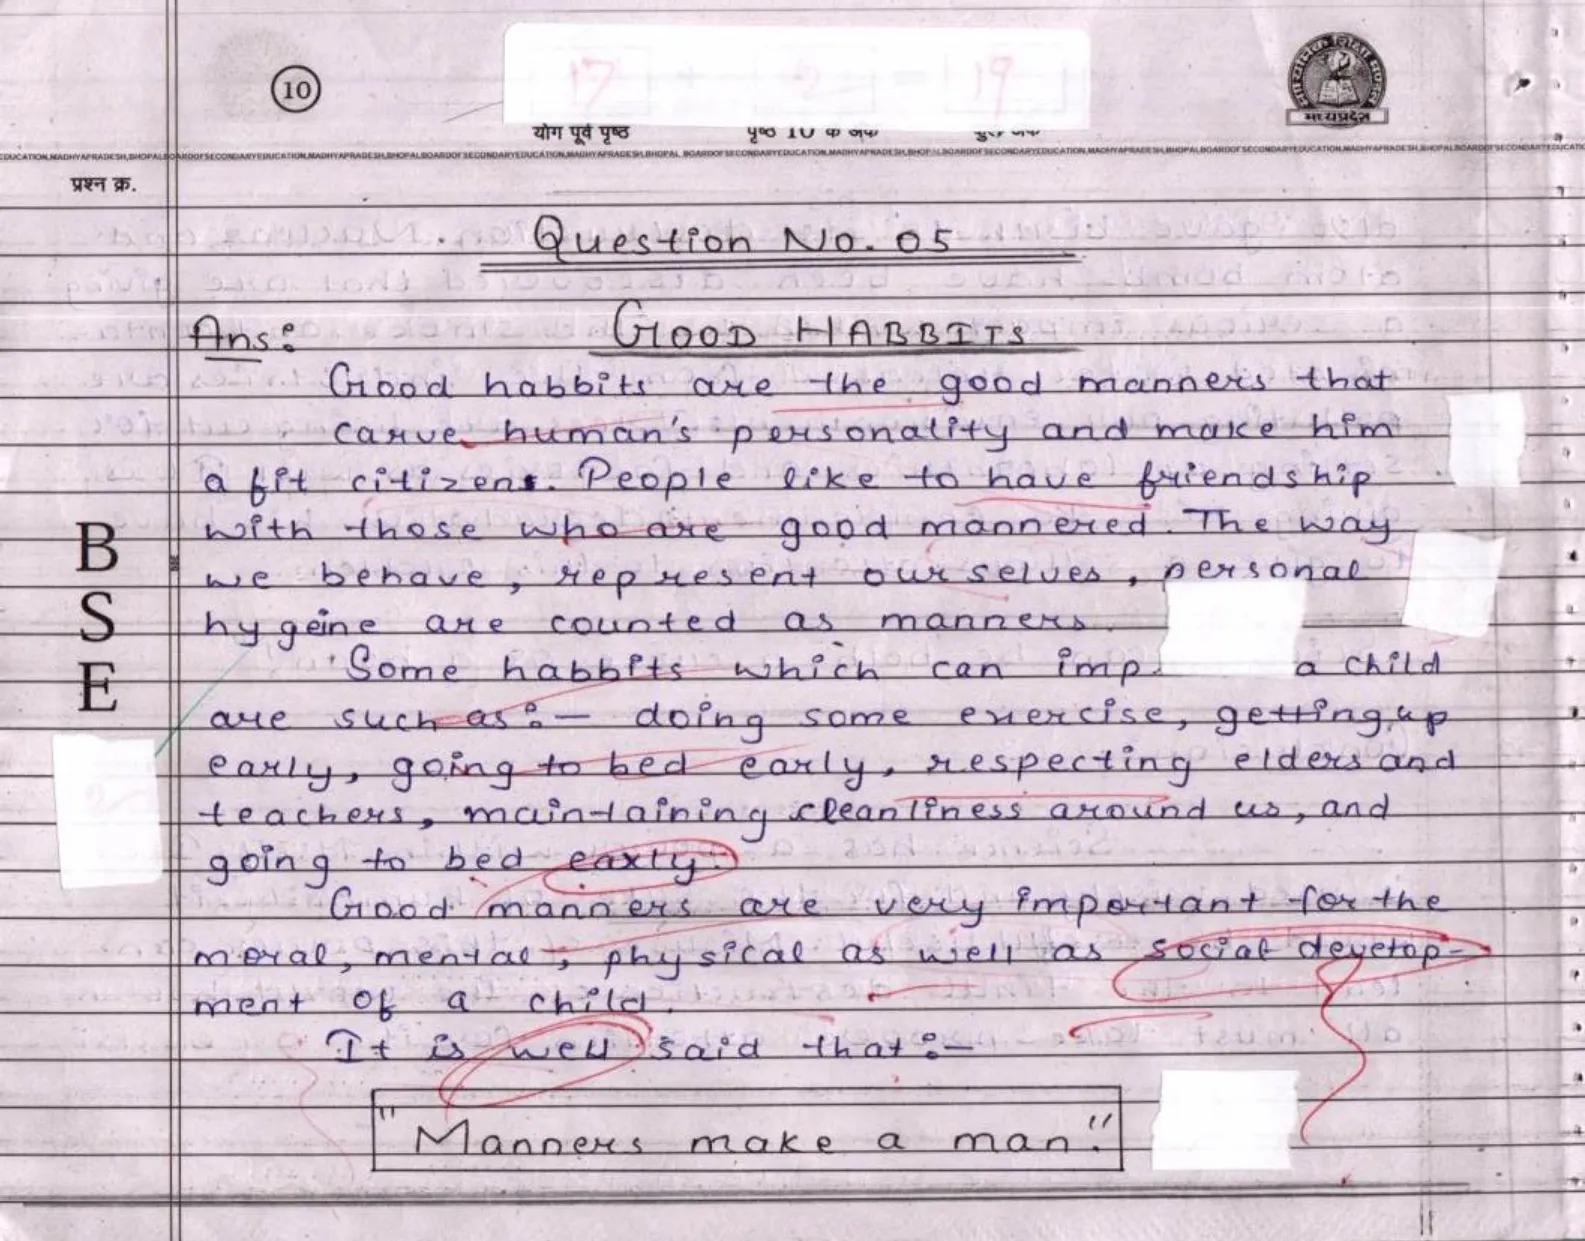 10
17 2 19
योग पूर्व पृष्ठ पृष्ठ 10 के अंक कुल अंक
मध्यप्रदेश
प्रश्न क्र.
Question No. 05
Ans: GOOD HABBITS
Good habbits are the good manners that
carve human's personality and make him
a fit citizen. People like to have friendship
with those who are good mannered. The way
we behave, represent ourselves, personal
hygeine are counted as manners.
Some habbits which can imp a child
are such as:- doing some exercise, getting up
early, going to bed early, respecting elders and
teachers, maintaining cleanliness around us, and
going to bed early.
Good manners are very important for the
moral, mental, physical as well as social develop-
ment of a child.
It is well said that:-
"Manners make a man."
B
S
E